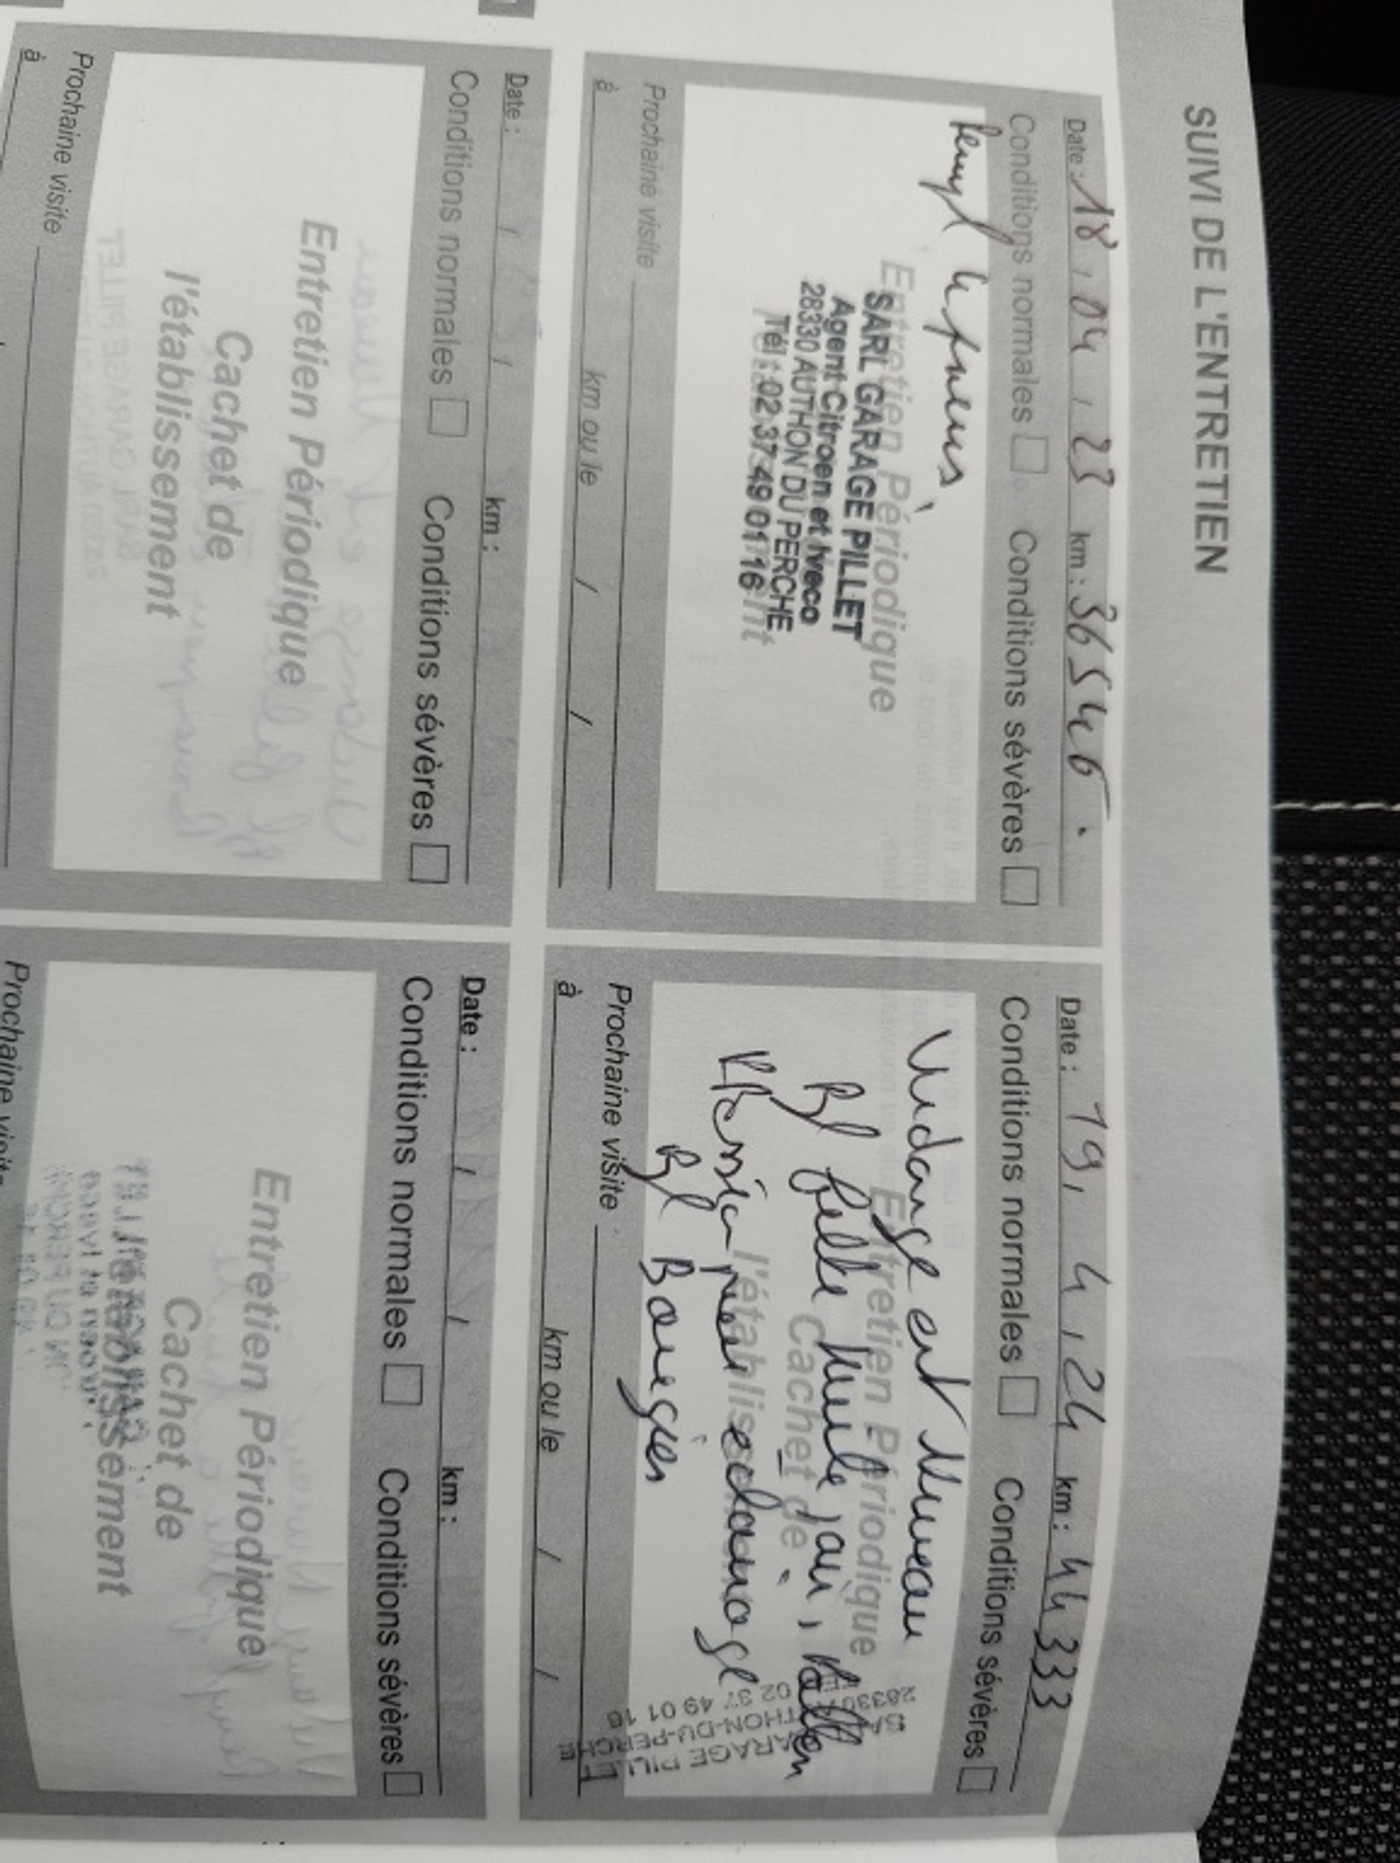 SUIVI DE L'ENTRETIEN
Date : 18 / 04 / 23 km : 36546.
Conditions normales Conditions sévères
Entretien Périodique
SARL GARAGE PILLET
Agent Citroen et Iveco
28330 AUTHON DU PERCHE
Tél : 02 37 49 01 16
Prochaine visite
à km ou le / /
Date : 19 / 4 / 24 km : 44333
Conditions normales Conditions sévères
Entretien Périodique
Cachet de
l'établissement
Vidange et Niveau
Rpl filtre huile
échange
Rpl Bougies
GARAGE PILLET
THON-DU-PERCHE
28330
02 37 49 01 16
Prochaine visite
à km ou le / /
Date : / / km :
Conditions normales Conditions sévères
Entretien Périodique
Cachet de
l'établissement
Prochaine visite
à
Date : / / km :
Conditions normales Conditions sévères
Entretien Périodique
Cachet de
l'établissement
Prochaine visite